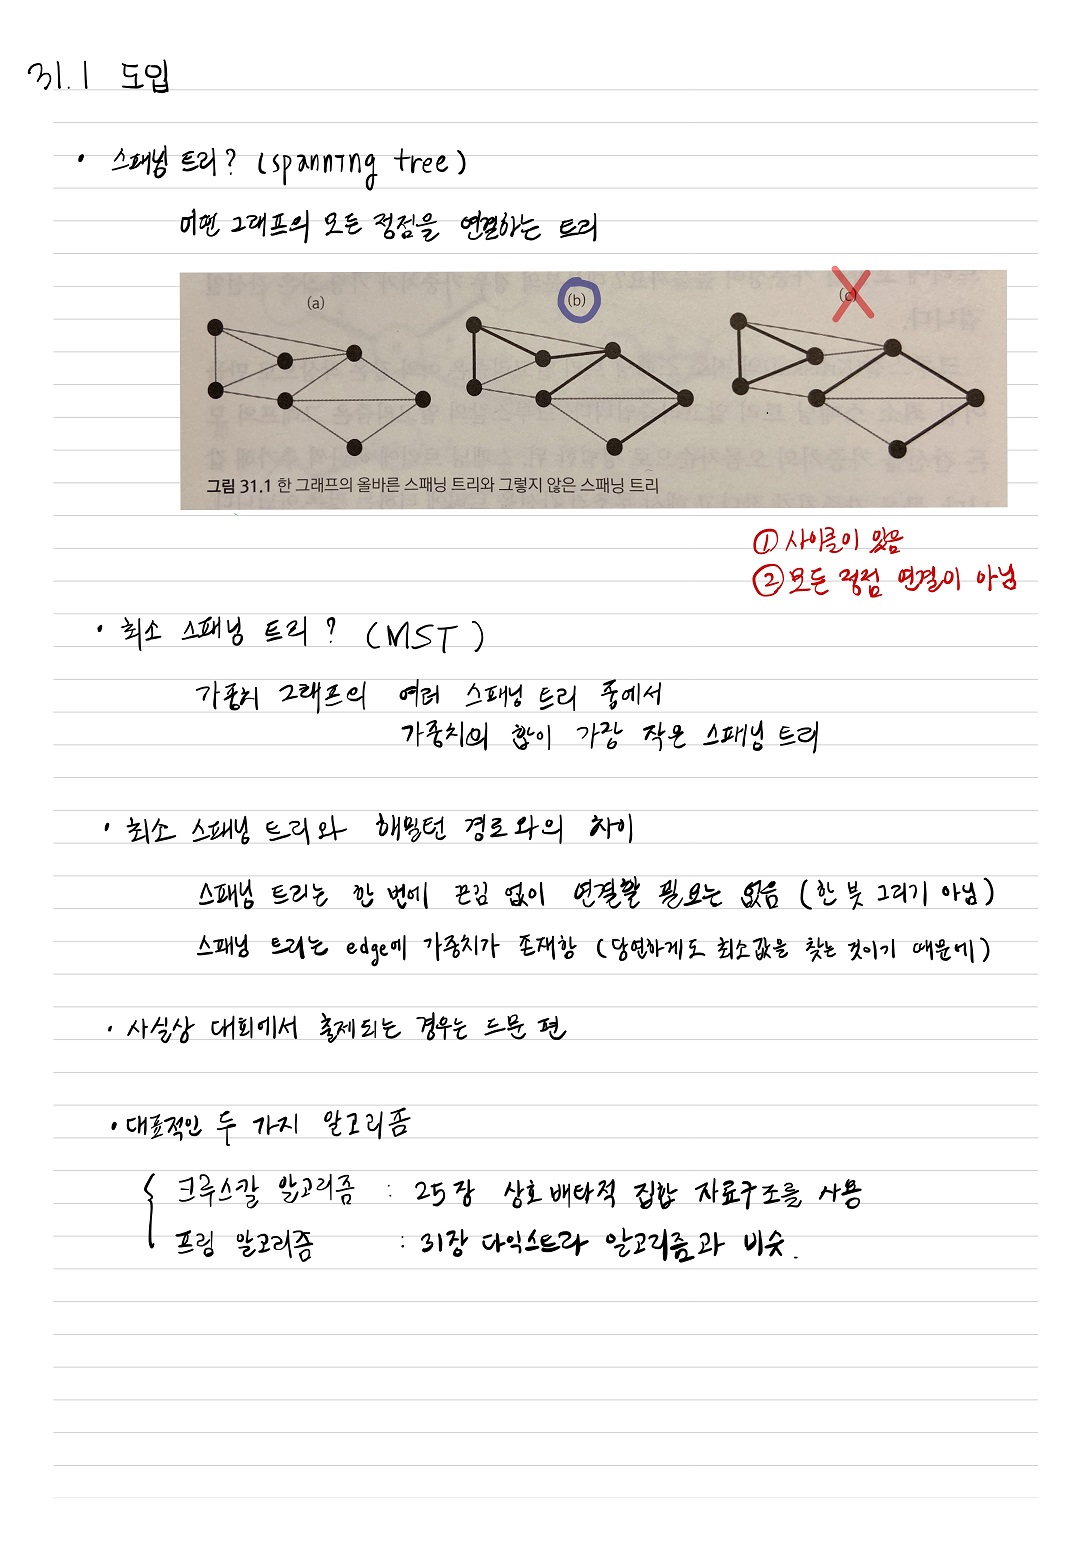 31.1 도입
• 스패닝 트리? (spanning tree)
어떤 그래프의 모든 정점을 연결하는 트리
(a) (b) (c)
그림 31.1 한 그래프의 올바른 스패닝 트리와 그렇지 않은 스패닝 트리
① 사이클이 있음
② 모든 정점 연결이 아님
• 최소 스패닝 트리? (MST)
가중치 그래프의 여러 스패닝 트리 중에서
가중치의 합이 가장 작은 스패닝 트리
• 최소 스패닝 트리와 해밀턴 경로와의 차이
스패닝 트리는 한 번에 끈김 없이 연결할 필요는 없음 (한 붓 그리기 아님)
스패닝 트리는 edge에 가중치가 존재함 (당연하게도 최소값을 찾는 것이기 때문에)
• 사실상 대회에서 출제되는 경우는 드문 편
• 대표적인 두 가지 알고리즘
크루스칼 알고리즘 : 25장 상호 배타적 집합 자료구조를 사용
프림 알고리즘 : 31장 다익스트라 알고리즘과 비슷.